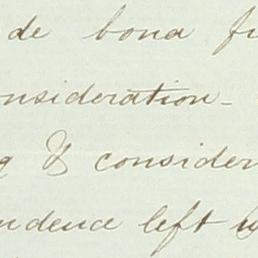 de bona fi
nsideration-
g & consider
ndence left